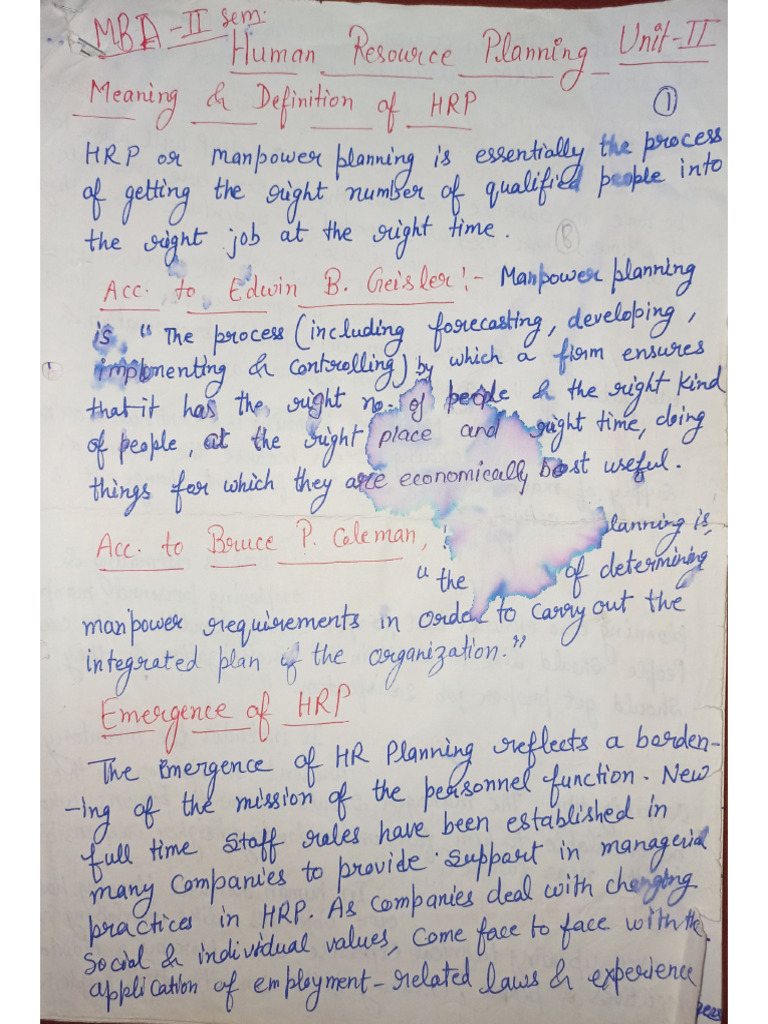 MBA-II sem.
Human Resource Planning Unit-II
Meaning & Definition of HRP
1
HRP or manpower planning is essentially the process
of getting the right number of qualified people into
the right job at the right time.
Acc. to Edwin B. Geisler:- Manpower planning
is, "The process (including forecasting, developing,
implmenting & controlling) by which a firm ensures
that it has the right no. of people & the right kind
of people, at the right place and right time, doing
things for which they are economically best useful.
Acc. to Bruce P. Coleman,
lanning is,
"the of determining
manpower requirements in order to carry out the
integrated plan of the organization."
Emergence of HRP
The Emergence of HR Planning reflects a borden-
-ing of the mission of the personnel function. New
full time Staff roles have been established in
many Companies to provide support in managerial
practices in HRP. As Companies deal with changing
Social & individual values, Come face to face with the
application of employment-related laws & experience